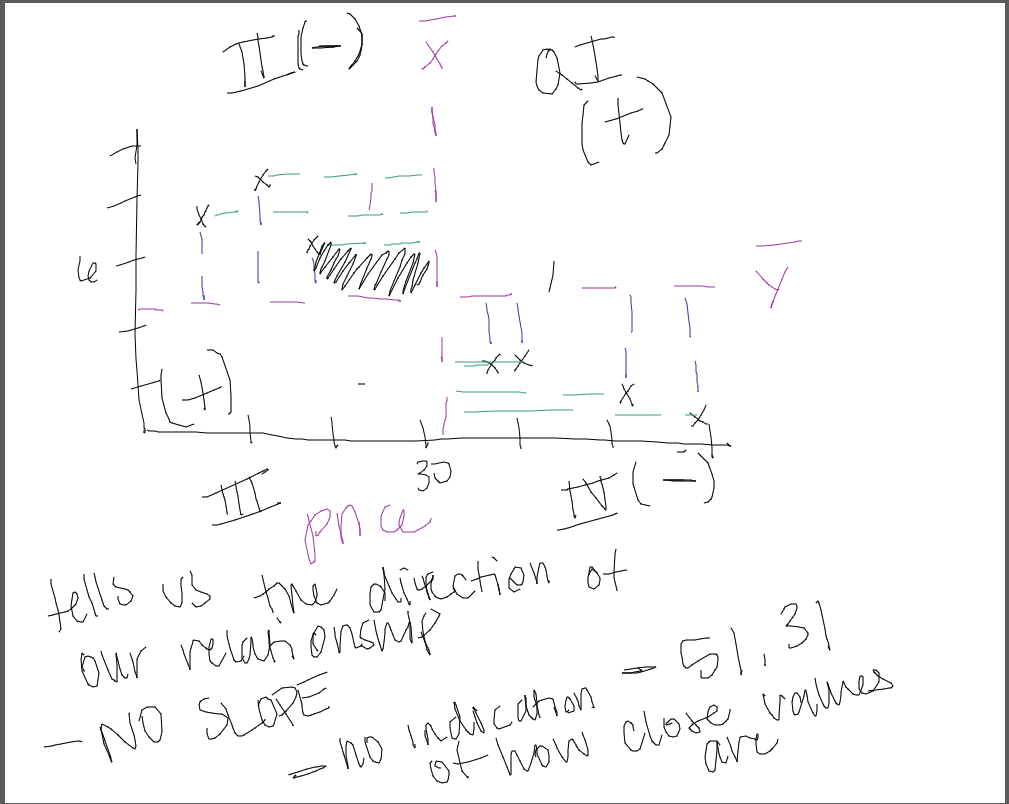 II (-)
X̄
QI
(+)
6
Ȳ
(+)
30
III
IV (-)
price
tells us the direction of
our relationship
- NO SLOPE
- 51.31
- no indication
of how close values
are